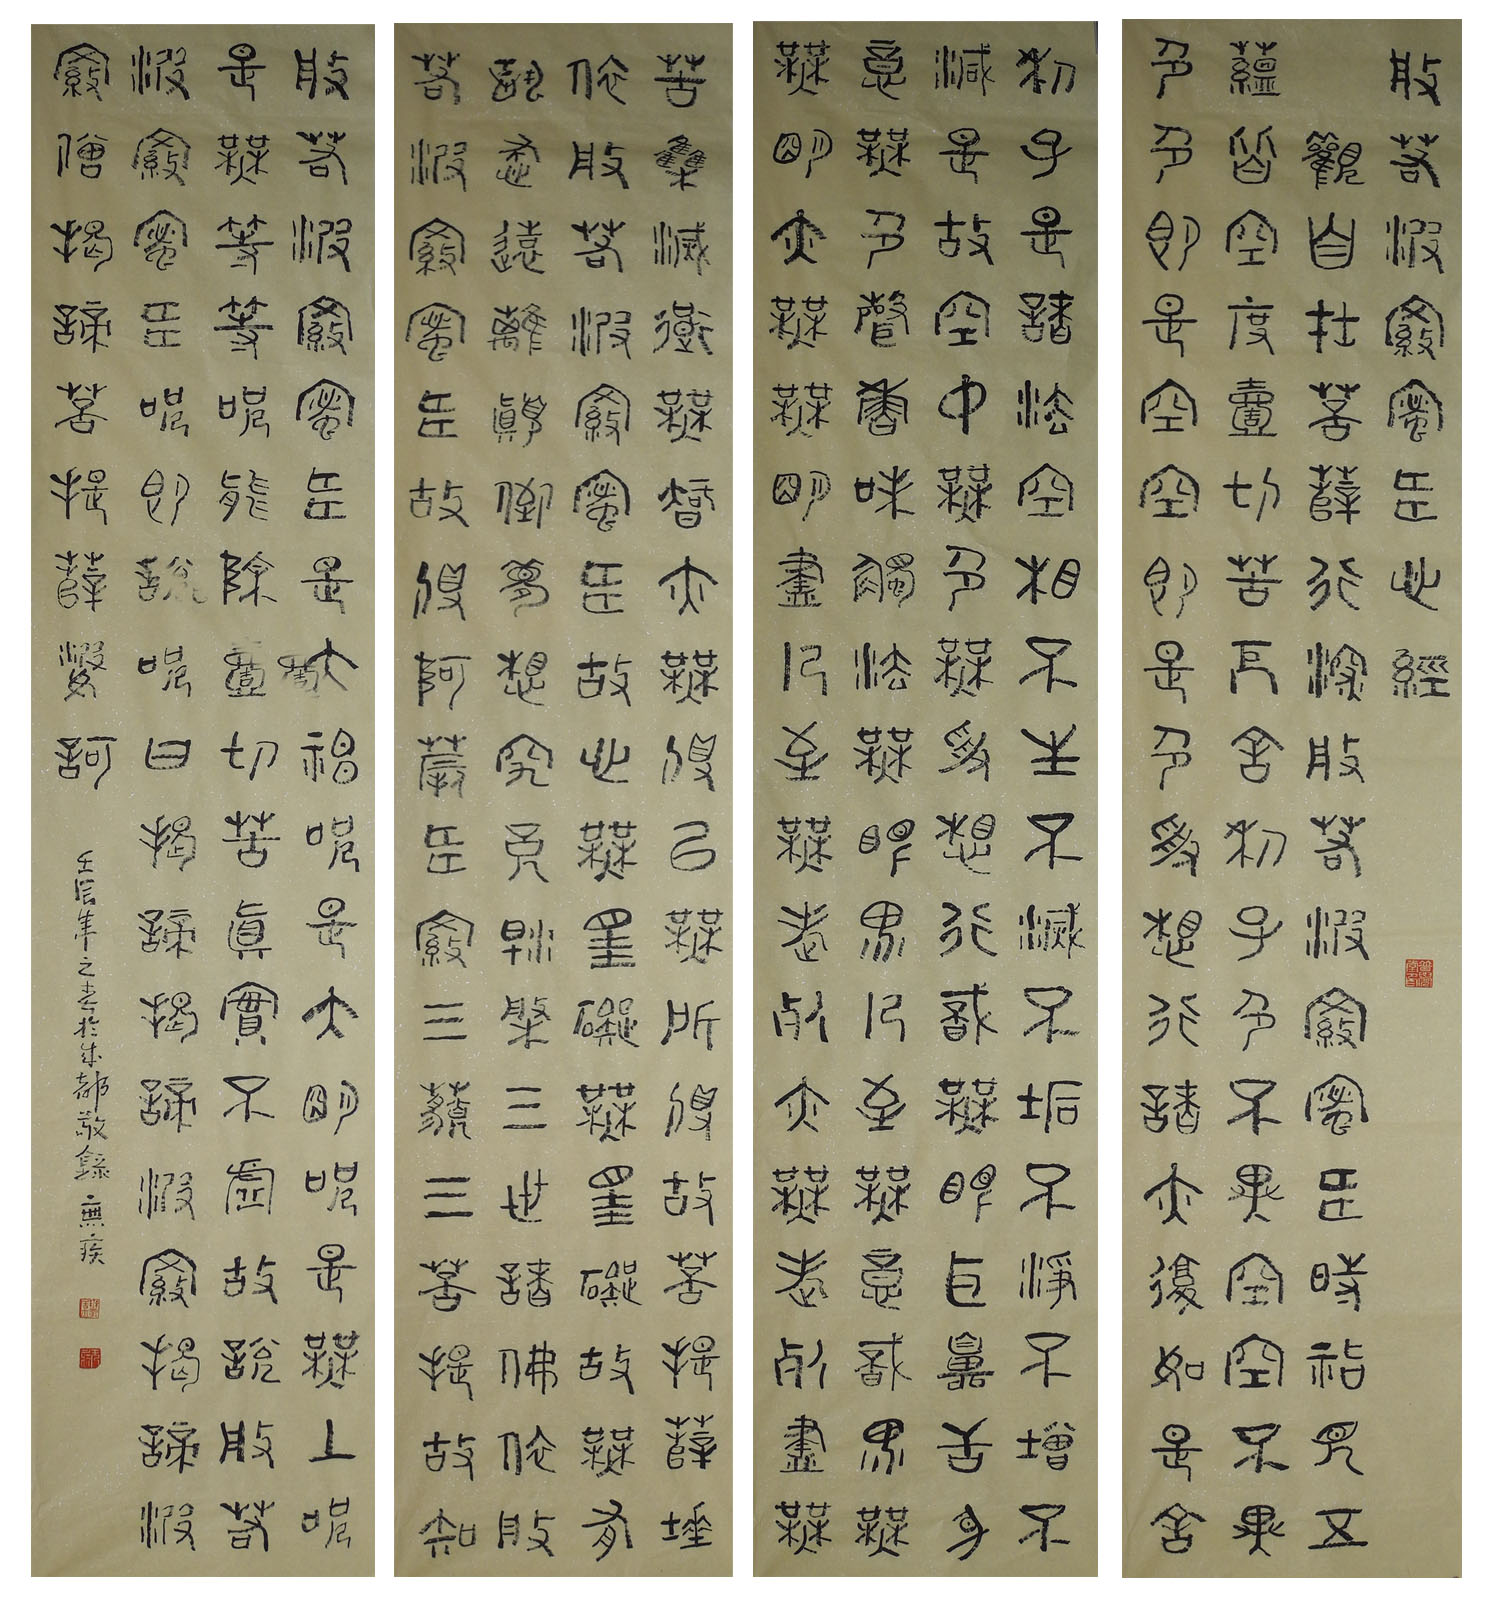 般若波羅蜜多心經
觀自在菩薩行深般若波羅蜜多時照見五
蘊皆空度壹切苦厄舍利子色不異空空不異
色色即是空空即是色受想行識亦復如是舍
利子是諸法空相不生不滅不垢不淨不增不
減是故空中無色無受想行識無眼耳鼻舌身
意無色聲香味觸法無眼界乃至無意識界無
無明亦無無明盡乃至無老死亦無老死盡無
苦集滅道無智亦無得以無所得故菩提薩埵
依般若波羅蜜多故心無罣礙無罣礙故無有
恐怖遠離顛倒夢想究竟涅槃三世諸佛依般
若波羅蜜多故得阿耨多羅三藐三菩提故知
般若波羅蜜多是大神咒是大明咒是無上咒
是無等等咒能除壹切苦真實不虛故說般若
波羅蜜多咒即說咒曰揭諦揭諦波羅揭諦波
羅僧揭諦菩提薩婆訶
壬辰年之春於成都敬錄無疾